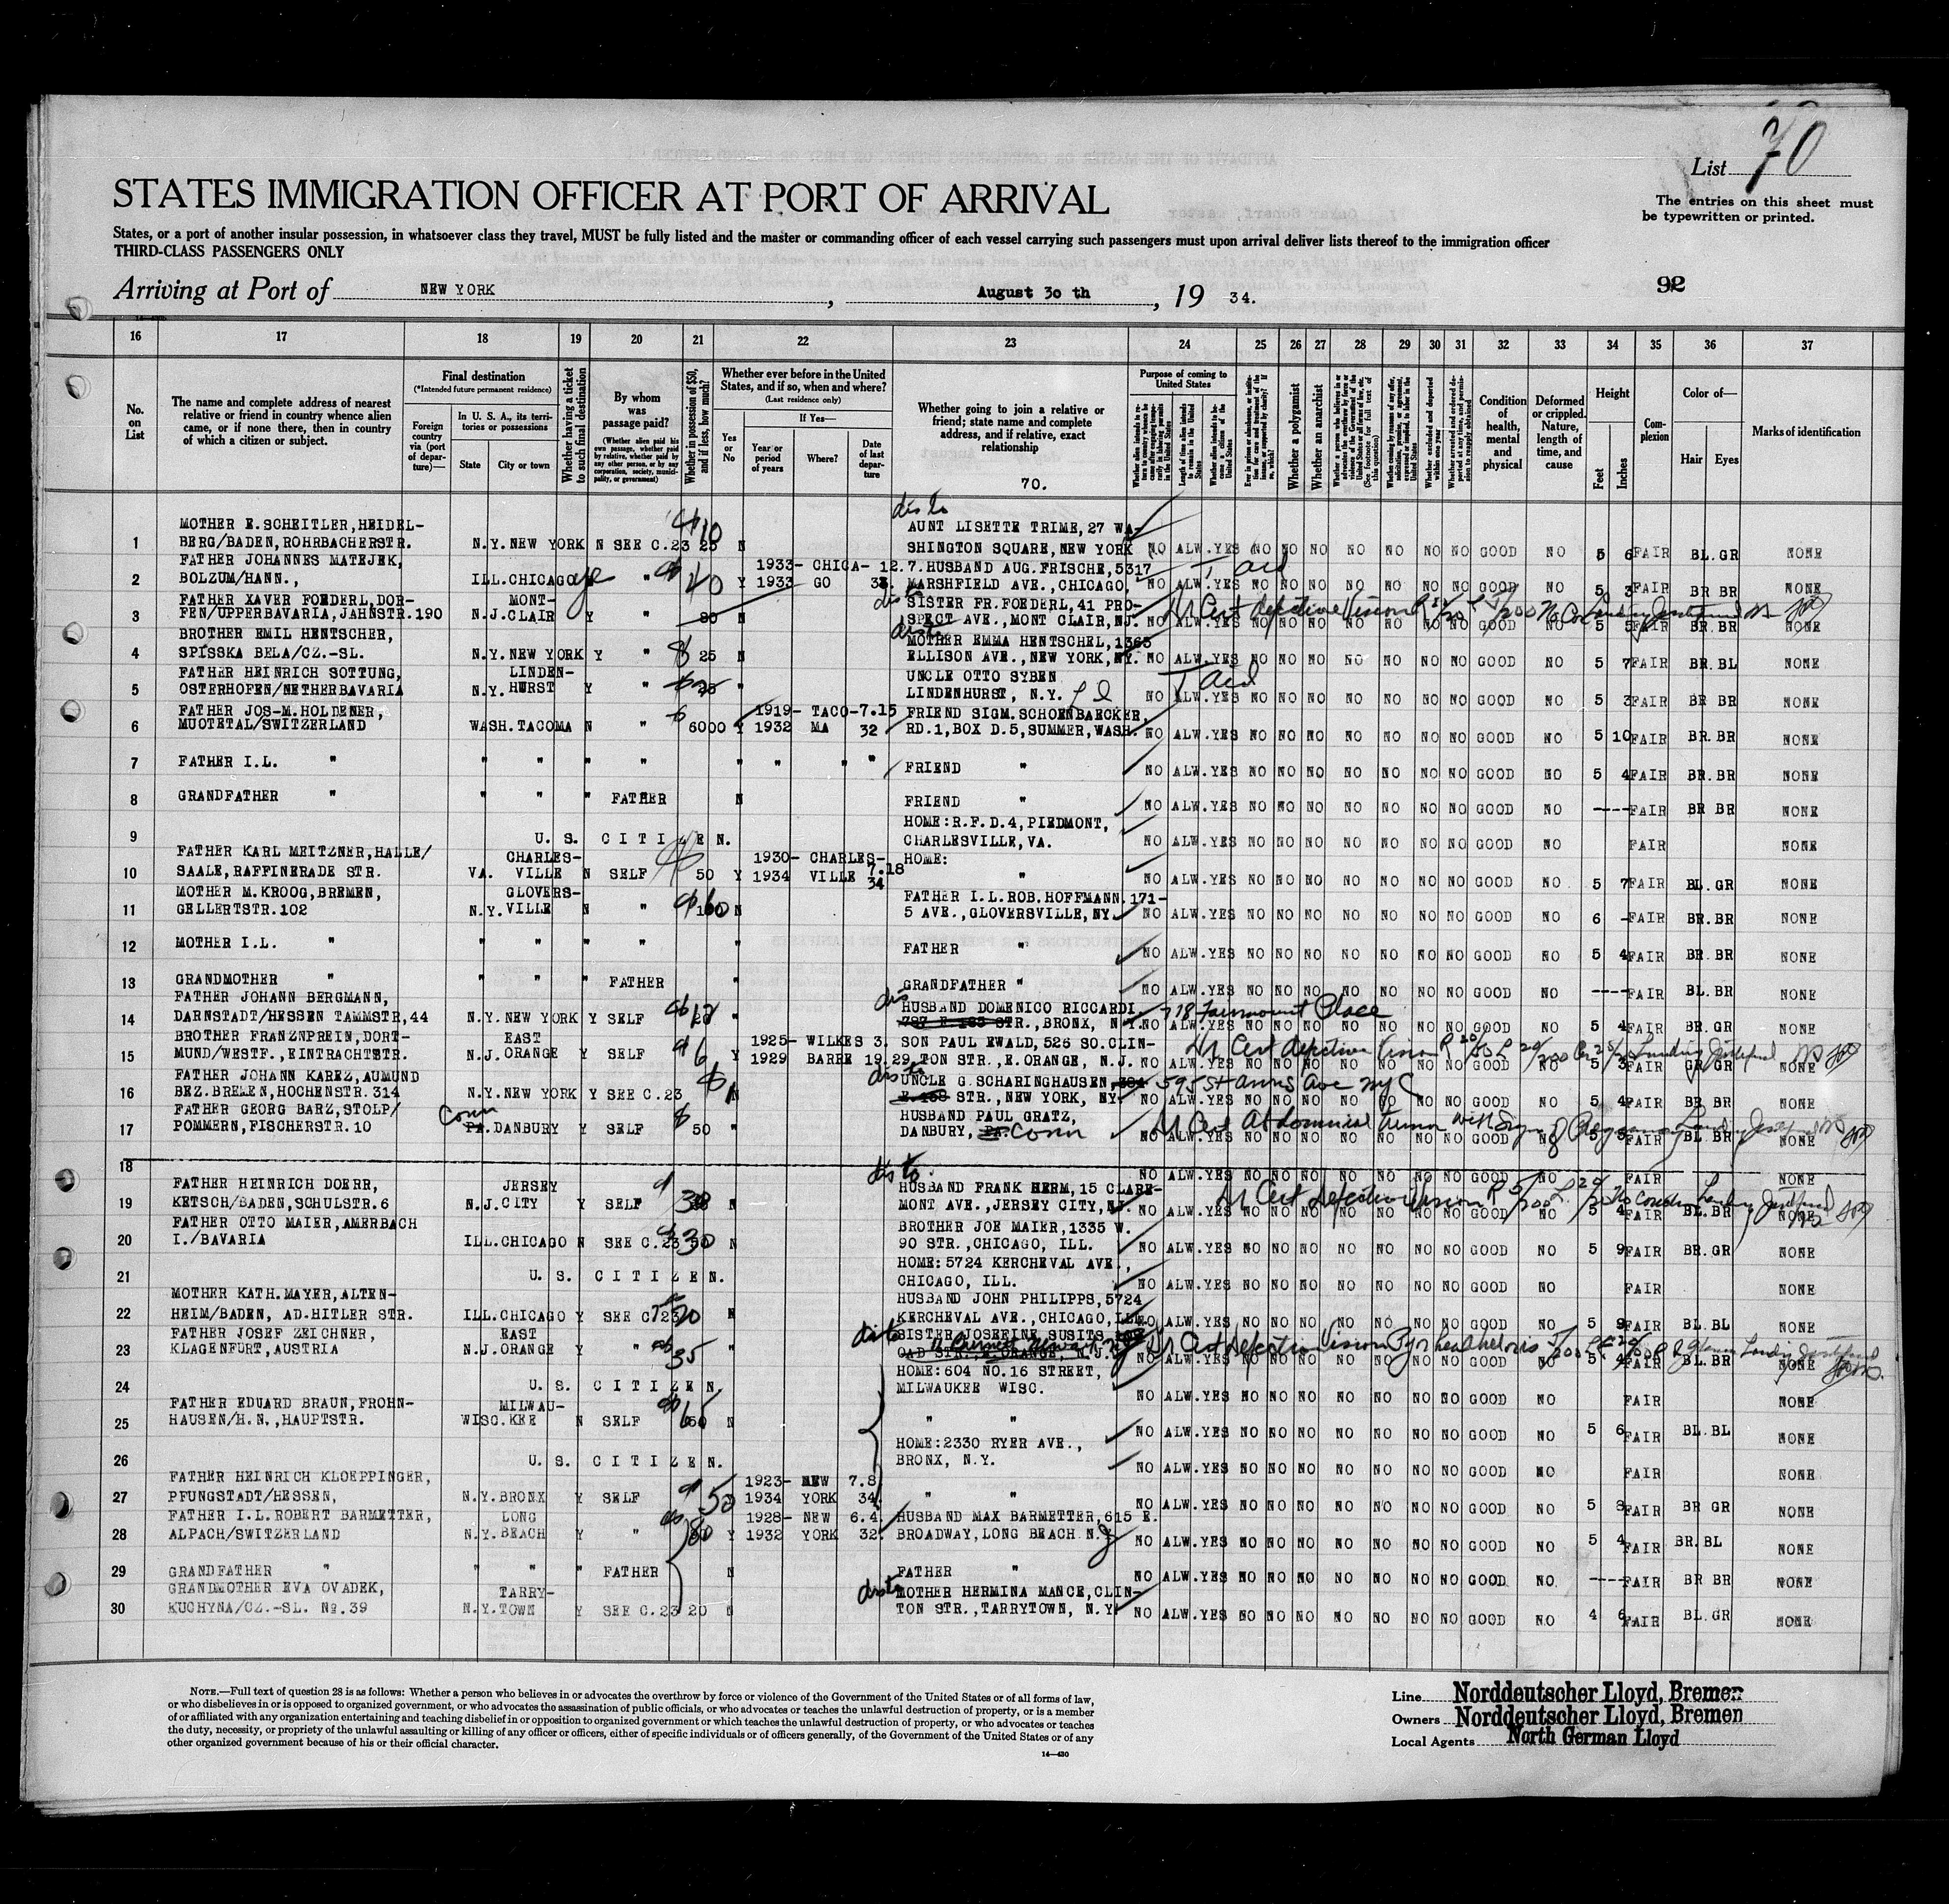 List 70
STATES IMMIGRATION OFFICER AT PORT OF ARRIVAL
The entries on this sheet must
be typewritten or printed.
States, or a port of another insular possession, in whatsoever class they travel, MUST be fully listed and the master or commanding officer of each vessel carrying such passengers must upon arrival deliver lists thereof to the immigration officer
THIRD-CLASS PASSENGERS ONLY
92
Arriving at Port of NEW YORK, August 30 th, 19 34.
16 17 18 19 20 21 22 23 24 25 26 27 28 29 30 31 32 33 34 35 36 37
No. on List
The name and complete address of nearest relative or friend in country whence alien came, or if none there, then in country of which a citizen or subject.
Final destination
(*Intended future permanent residence)
Foreign country via (port of departure)—
In U. S. A., its territories or possessions
State
City or town
Whether having a ticket to such final destination
By whom was passage paid?
(Whether alien paid his own passage, whether paid by relative, whether paid by any other person, or by any corporation, society, municipality, or government)
Whether in possession of $50, and if less, how much?
Whether ever before in the United States, and if so, when and where?
(Last residence only)
Yes or No
If Yes—
Year or period of years
Where?
Date of last departure
Whether going to join a relative or friend; state name and complete address, and if relative, exact relationship
70.
Purpose of coming to United States
Length of time alien intends to remain in the United States
Whether alien intends to become a citizen of the United States
Whether a polygamist
Whether an anarchist
Condition of health, mental and physical
Deformed or crippled. Nature, length of time, and cause
Height
Feet
Inches
Complexion
Color of—
Hair
Eyes
Marks of identification
1 MOTHER E. SCHEITLER, HEIDEL-
BERG/BADEN, ROHRBACHERSTR. N.Y. NEW YORK N SEE C.23 25 N AUNT LISETTE TRIME, 27 WA-
SHINGTON SQUARE, NEW YORK NO ALW. YES NO NO NO NO NO NO NO GOOD NO 5 6 FAIR BL. GR NONE
2 FATHER JOHANNES MATEJEK,
BOLZUM/HANN., ILL. CHICAGO " Y 1933- CHICA- 12.7.
1933 GO 33. HUSBAND AUG. FRISCHE, 5317
MARSHFIELD AVE., CHICAGO. NO ALW. YES NO NO NO NO NO NO NO GOOD NO 5 3 FAIR BR BR NONE
3 FATHER XAVER FOEDERL, DOR-
FEN/UPPERBAVARIA, JAHNSTR. 190 N.J. MONT-
CLAIR Y SISTER FR. FOEDERL, 41 PRO-
SPECT AVE., MONT CLAIR, NJ. NO ALW. YES NO NO NO NO NO NO NO GOOD NO 5 5 FAIR BR. BR NONE
4 BROTHER EMIL HENTSCHER,
SPISSKA BELA/CZ.-SL. N.Y. NEW YORK Y " 25 N MOTHER EMMA HENTSCHEL, 1365
ELLISON AVE., NEW YORK, NY. NO ALW. YES NO NO NO NO NO NO NO GOOD NO 5 7 FAIR BR. BL NONE
5 FATHER HEINRICH SOTTUNG,
OSTERHOFEN/NETHERBAVARIA N.Y. LINDEN-
HURST Y " 25 " UNCLE OTTO SYBEN
LINDENHURST, N.Y. NO ALW. YES NO NO NO NO NO NO NO GOOD NO 5 3 FAIR BR BR NONE
6 FATHER JOS-M. HOLDENER,
MUOTETAL/SWITZERLAND WASH. TACOMA N " 6000 Y 1919- TACO- 7.15
1932 MA 32 FRIEND SIGM. SCHOENBAECKER,
RD.1, BOX D.5, SUMMER, WASH. NO ALW. YES NO NO NO NO NO NO NO GOOD NO 5 10 FAIR BR. BR NONE
7 FATHER I.L. " " " " " " " " " FRIEND " NO ALW. YES NO NO NO NO NO NO NO GOOD NO 5 4 FAIR BR. BR NONE
8 GRANDFATHER " " " " FATHER N FRIEND " NO ALW. YES NO NO NO NO NO NO NO GOOD NO ---- FAIR BR BR NONE
9 U. S. CITIZEN. HOME: R.F.D.4, PIEDMONT,
CHARLESVILLE, VA. NO ALW. YES NO NO NO NO NO NO NO GOOD NO FAIR NONE
10 FATHER KARL MEITZNER, HALLE/
SAALE, RAFFINERADE STR. VA. CHARLES-
VILLE N SELF 50 Y 1930- CHARLES-
1934 VILLE 7.18
34 HOME:
" NO ALW. YES NO NO NO NO NO NO NO GOOD NO 5 7 FAIR BL. GR NONE
11 MOTHER M. KROOG, BREMEN,
GELLERTSTR. 102 N.Y. GLOVERS-
VILLE N " N FATHER I.L. ROB. HOFFMANN. 171-
5 AVE., GLOVERSVILLE, NY. NO ALW. YES NO NO NO NO NO NO NO GOOD NO 6 - FAIR BR. BR NONE
12 MOTHER I.L. " " " " " " FATHER " NO ALW. YES NO NO NO NO NO NO NO GOOD NO 5 4 FAIR BR. BR NONE
13 GRANDMOTHER " " " " FATHER " GRANDFATHER " NO ALW. YES NO NO NO NO NO NO NO GOOD NO ---- FAIR BL. BR NONE
14 FATHER JOHANN BERGMANN,
DARNSTADT/HESSEN TAMMSTR, 44 N.Y. NEW YORK Y SELF $12 " HUSBAND DOMENICO RICCARDI
STR., BRONX, N.Y. 718 Fairmount Place NO ALW. YES NO NO NO NO NO NO NO GOOD NO 5 4 FAIR BR. GR NONE
15 BROTHER FRANZNPREIN, DORT-
MUND/WESTF., EINTRACHTSTR. N.J. EAST
ORANGE Y SELF $6 Y 1925- WILKES 3.
1929 BARRE 19.29 SON PAUL EWALD, 526 SO. CLIN-
TON STR., E. ORANGE, N.J. NO ALW. YES NO NO NO NO NO NO NO GOOD NO 5 3 FAIR GR. GR NONE
16 FATHER JOHANN KAREZ, AUMUND
BEZ. BRELEN, HOCHENSTR. 314 N.Y. NEW YORK Y SEE C.23 N UNCLE G. SCHARINGHAUSEN, 595 St anns Ave NYC
STR., NEW YORK, NY. NO ALW. YES NO NO NO NO NO NO NO GOOD NO 5 4 FAIR BR BR NONE
17 FATHER GEORG BARZ, STOLP/
POMMERN, FISCHERSTR. 10 Conn PA. DANBURY Y SELF 50 " HUSBAND PAUL GRATZ,
DANBURY, PA. Conn NO ALW. YES NO NO NO NO NO NO NO GOOD NO 5 3 FAIR BL. BR NONE
18 NO ALW. YES NO NO NO NO NO NO NO GOOD NO FAIR NONE
19 FATHER HEINRICH DOERR,
KETSCH/BADEN, SCHULSTR. 6 N.J. JERSEY
CITY Y SELF N HUSBAND FRANK HERM, 15 CLARE-
MONT AVE., JERSEY CITY, N.J. NO ALW. YES NO NO NO NO NO NO NO GOOD NO 5 4 FAIR BL. BR NONE
20 FATHER OTTO MAIER, AMERBACH
I./BAVARIA ILL. CHICAGO N SEE C.23 30 N BROTHER JOE MAIER, 1335 W.
90 STR., CHICAGO, ILL. NO ALW. YES NO NO NO NO NO NO NO GOOD NO 5 9 FAIR BR. GR NONE
21 U. S. CITIZEN. HOME: 5724 KERCHEVAL AVE.,
CHICAGO, ILL. NO ALW. YES NO NO NO NO NO NO NO GOOD NO FAIR NONE
22 MOTHER KATH. MAYER, ALTEN-
HEIM/BADEN, AD. HITLER STR. ILL. CHICAGO Y SEE C.23 20 N HUSBAND JOHN PHILIPPS, 5724
KERCHEVAL AVE., CHICAGO, ILL. NO ALW. YES NO NO NO NO NO NO NO GOOD NO 5 9 FAIR BL. BL NONE
23 FATHER JOSEF ZEICHNER,
KLAGENFURT, AUSTRIA N.J. EAST
ORANGE Y " 35 " SISTER JOSEFINE SUSITS
OAD STR., E. ORANGE, N.J. NO ALW. YES NO NO NO NO NO NO NO GOOD NO 5 4 FAIR BL. BR NONE
24 U. S. CITIZEN HOME: 604 NO. 16 STREET,
MILWAUKEE WISC. NO ALW. YES NO NO NO NO NO NO NO GOOD NO FAIR NONE
25 FATHER EDUARD BRAUN, FROHN-
HAUSEN/H.N., HAUPTSTR. WISC. MILWAU-
KEE N SELF N " " NO ALW. YES NO NO NO NO NO NO NO GOOD NO 5 6 FAIR BL. BL NONE
26 U. S. CITIZEN. HOME: 2330 RYER AVE.,
BRONX, N.Y. NO ALW. YES NO NO NO NO NO NO NO GOOD NO FAIR NONE
27 FATHER HEINRICH KLOEPPINGER,
PFUNGSTADT/HESSEN, N.Y. BRONX Y SELF 50 1923- NEW 7.8
1934 YORK 34. " " NO ALW. YES NO NO NO NO NO NO NO GOOD NO 5 8 FAIR BR GR NONE
28 FATHER I.L. ROBERT BARMETTER,
ALPACH/SWITZERLAND N.Y. LONG
BEACH Y " 80 Y 1928- NEW 6.4.
1932 YORK 32. HUSBAND MAX BARMETTER, 615 E.
BROADWAY, LONG BEACH N.Y. NO ALW. YES NO NO NO NO NO NO NO GOOD NO 5 4 FAIR BR. BL NONE
29 GRANDFATHER " " " " FATHER N FATHER " NO ALW. YES NO NO NO NO NO NO NO GOOD NO ---- FAIR BR BR NONE
30 GRANDMOTHER EVA OVADEK,
KUCHYNA/CZ.-SL. No. 39 N.Y. TARRY-
TOWN Y SEE C.23 20 N MOTHER HERMINA MANCE, CLIN-
TON STR., TARRYTOWN, N.Y. NO ALW. YES NO NO NO NO NO NO NO GOOD NO 4 6 FAIR BL. GR NONE
NOTE.—Full text of question 28 is as follows: Whether a person who believes in or advocates the overthrow by force or violence of the Government of the United States or of all forms of law,
or who disbelieves in or is opposed to organized government, or who advocates the assassination of public officials, or who advocates or teaches the unlawful destruction of property, or is a member
of or affiliated with any organization entertaining and teaching disbelief in or opposition to organized government or which teaches the unlawful destruction of property, or who advocates or teaches
the duty, necessity, or propriety of the unlawful assaulting or killing of any officer or officers, either of specific individuals or of officers generally, of the Government of the United States or of any
other organized government because of his or their official character.
14—430
Line Norddeutscher Lloyd, Bremen
Owners Norddeutscher Lloyd, Bremen
Local Agents North German Lloyd